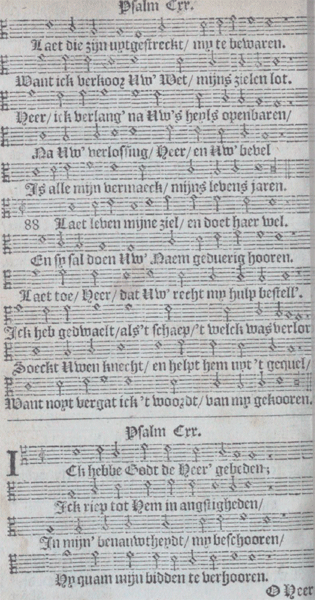 Psalm Cxx.
Laet die zijn uytgestreckt/ my te bewaren.
Want ick verkoor Uw' Wet/ mijns zielen lot.
Heer/ ick verlang' na Uw's heyls openbaren/
Na Uw' verlossing/ Heer/ en Uw' bevel
Is alle mijn vermaeck/ mijns levens jaren.
88 Laet leven mijne ziel/ en doet haer wel.
En sy sal doen Uw' Naem geduerig hooren.
Laet toe/ Heer/ dat Uw' recht my hulp bestell'.
Ick heb gedwaelt/ als 't schaep/ 't welck was verlor
Soeckt Uwen knecht/ en helpt hem uyt 't gequel/
Want noyt vergat ick 't woordt/ van my gekooren.
Psalm Cxx.
Ick hebbe Godt de Heer' gebeden;
Ick riep tot Hem in angstigheden/
In mijn' benauwtheydt/ my beschooren/
Hy quam mijn bidden te verhooren.
O Heer